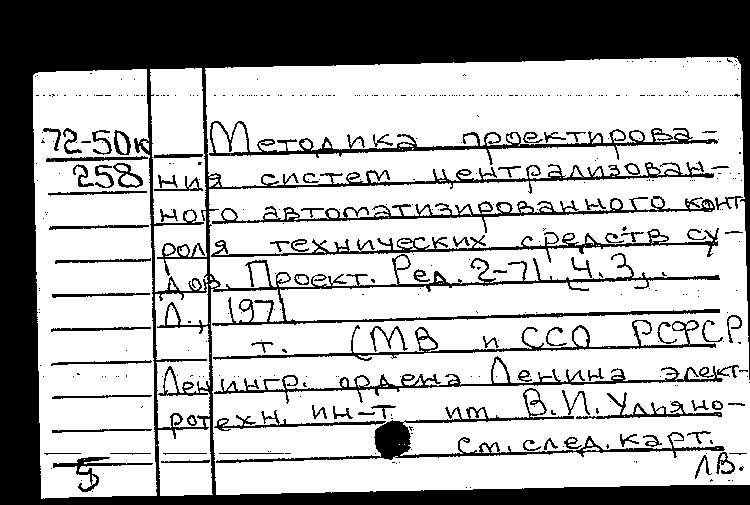 72-50к Методика проектирова-
258 ния систем централизован-
ного автоматизированного конт-
роля технических средств су-
дов. Проект. Ред. 2-71. Ч. 3,.
Л., 1971
т. (МВ и ССО РСФСР.
Ленингр. ордена Ленина элект-
ротехн. ин-т им. В.И. Ульяно-
см. след. карт.
5 Л.В.